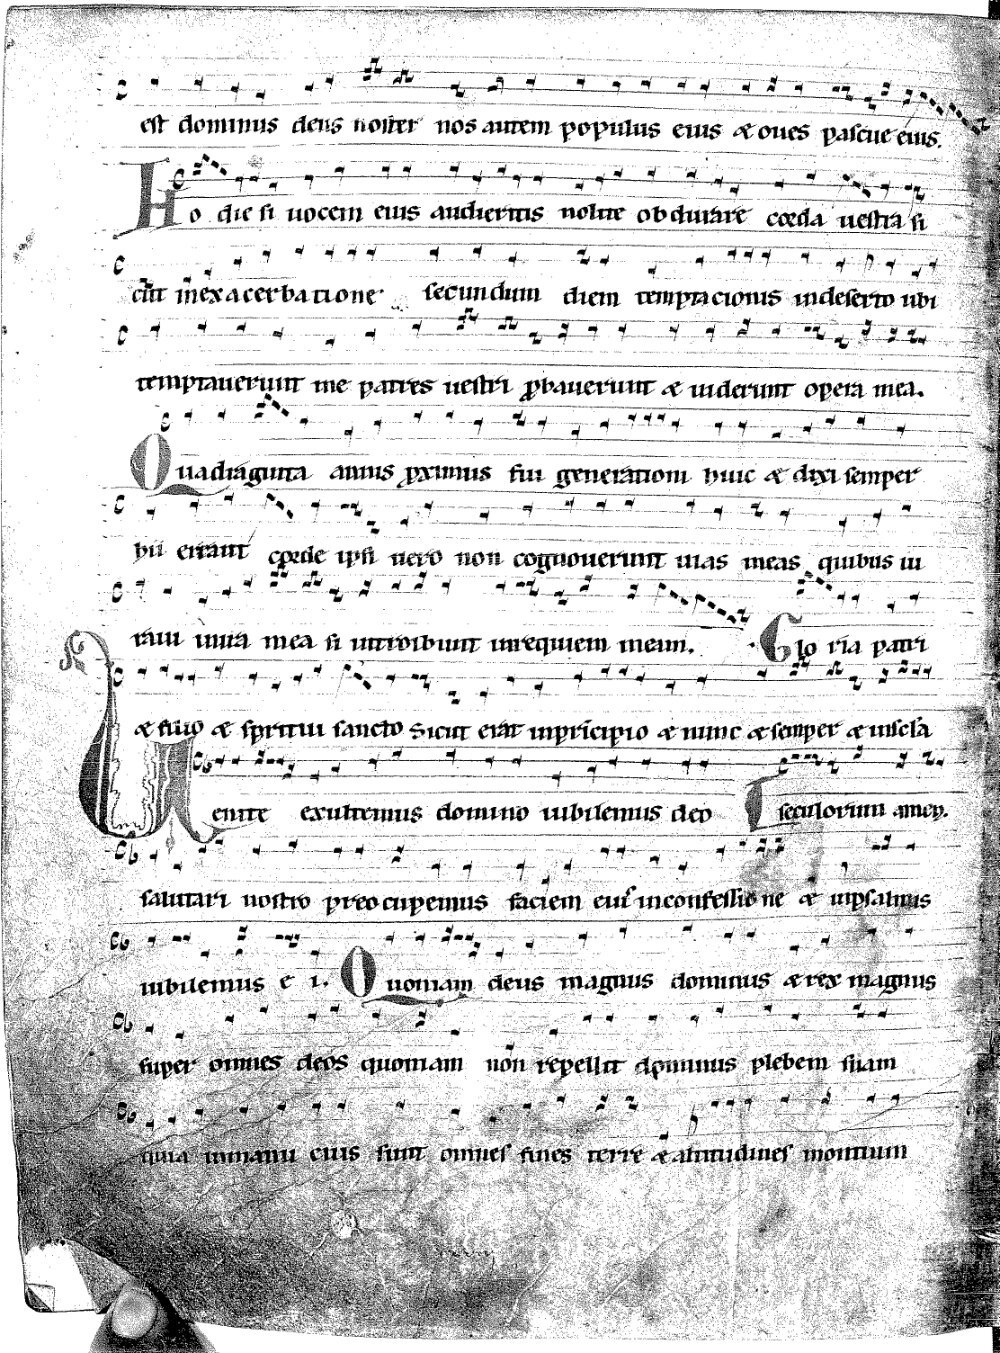 est dominus deus noster nos autem populus eius & oues pascue eius.
Ho die si uocem eius audieritis nolite obdurare corda uestra si
cut inexacerbatione secundum diem temptacionis indeserto ubi
temptauerunt me patres uestri probauerunt & uiderunt opera mea.
Quadraginta annis proximus fui generationi huic & dixi semper
hii errant corde ipsi uero non cognouerunt uias meas quibus iu
raui inira mea si introibunt inrequiem meam. Glo ria patri
& filio & spiritui sancto Sicut erat inprincipio & nunc & semper & inscla
Uenite exultemus domino iubilemus deo seculorum amen.
salutari nostro preocupemus faciem eius inconfessione & inpsalmis
iubilemus e i. Quoniam deus magnus dominus & rex magnus
super omnes deos quoniam non repellit dominus plebem suam
quia inmanu eius sunt omnes fines terre & altitudines montium